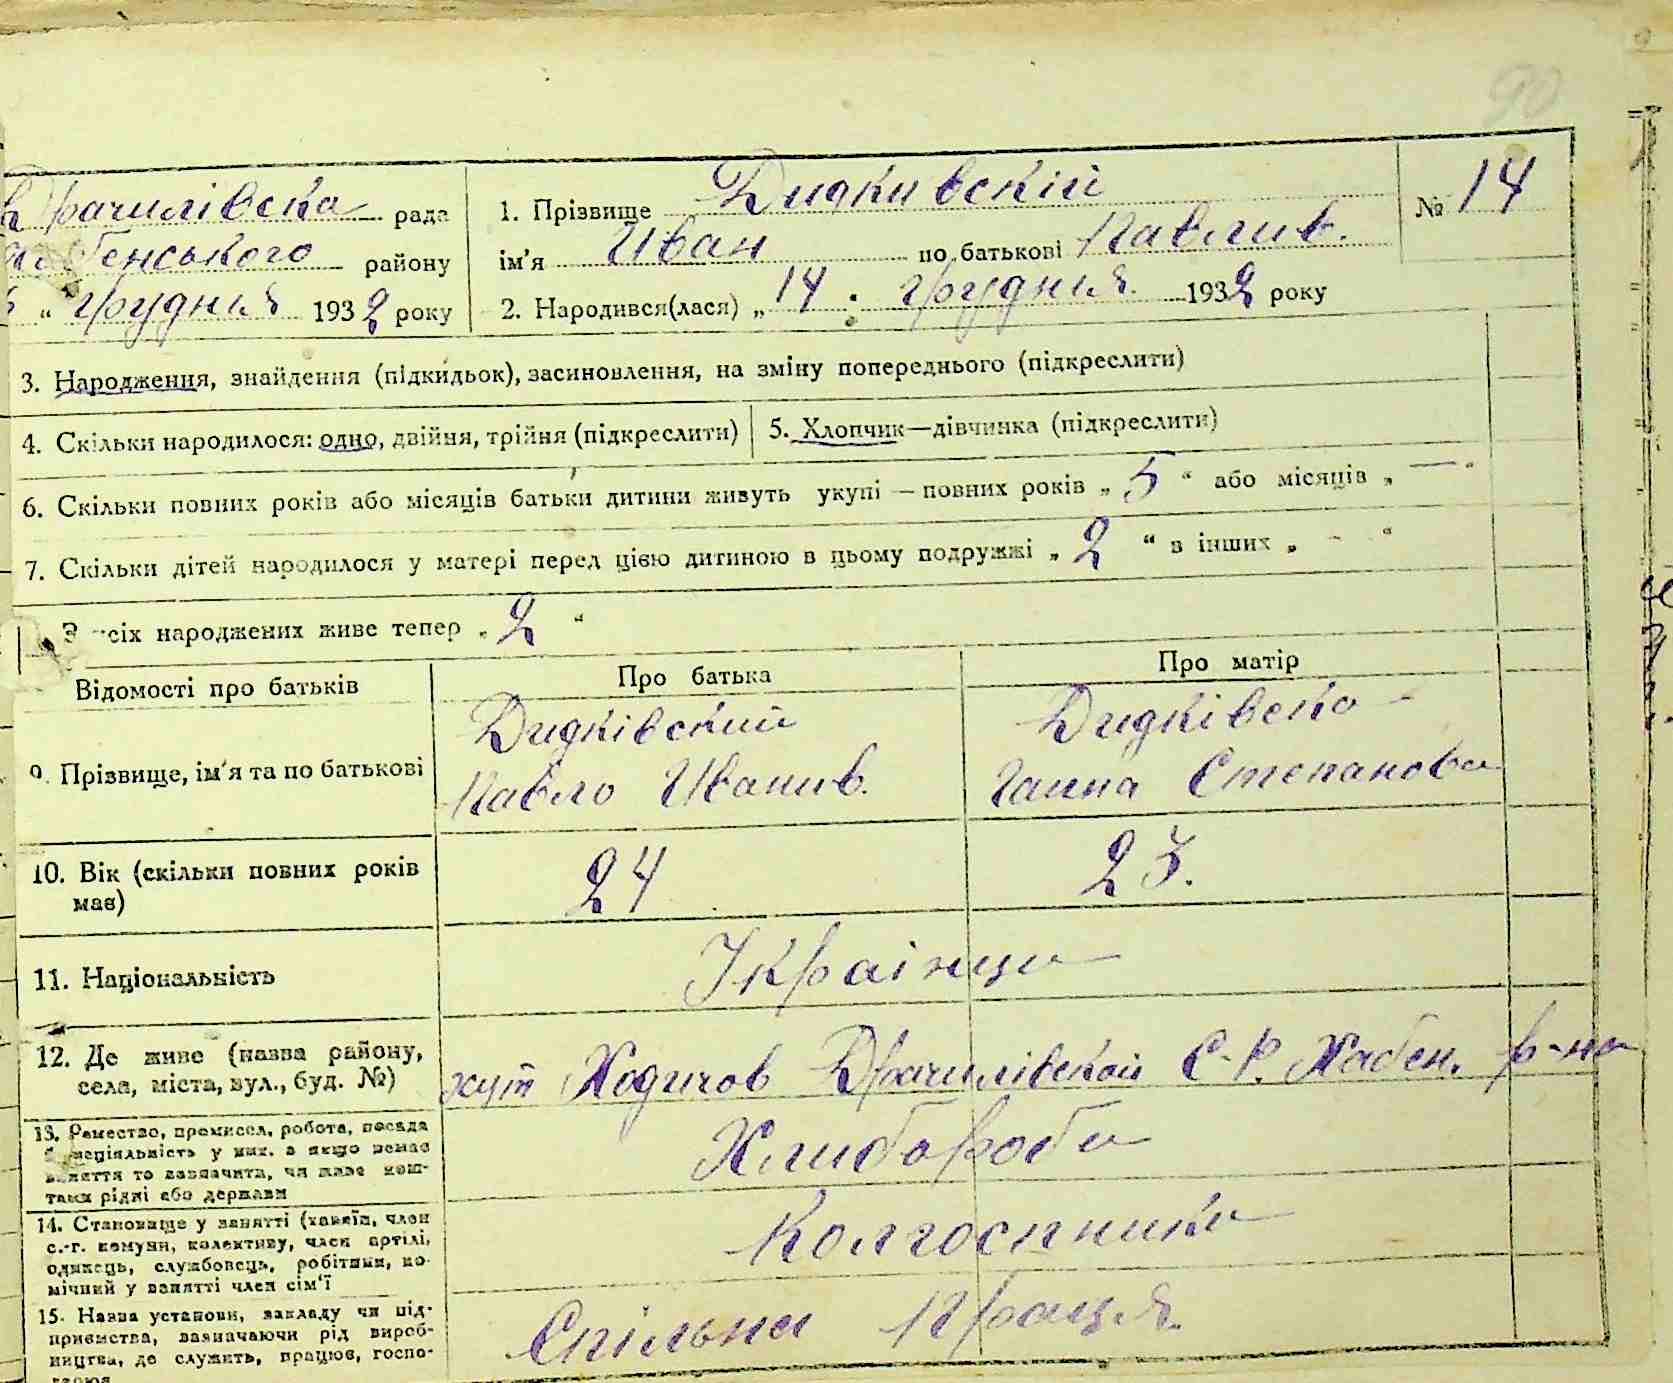 90
Врачилівска рада
бенського району
" грудня 1932 року
1. Прізвище Дидкивскій
ім'я Иван по батькові Павлив.
№ 14
2. Народився(лася) „ 14 . грудня. 1932 року
3. Народження, знайдення (підкидьок), засиновлення, на зміну попереднього (підкреслити)
4. Скільки народилося: одно, двійня, трійня (підкреслити)
5. Хлопчик—дівчинка (підкреслити)
6. Скільки повних років або місяців батьки дитини живуть укупі — повних років „ 5 “ або місяців „ — “
7. Скільки дітей народилося у матері перед цією дитиною в цьому подружжі „ 2 “ з інших „ - “
З усіх народжених живе тепер „ 2 “
Відомості про батьків
Про батька
Про матір
9. Прізвище, ім'я та по батькові
Дидківский
Павло Иванив.
Дидківска
Ганна Степанова
10. Вік (скільки повних років
має)
24
23.
11. Національність
Українци
12. Де живе (назва району,
села, міста, вул., буд. №)
хут Ходичов Врачилівской С-Р. Хабен. р-на
13. Ремество, промисел, робота, посада
спеціяльність у них, а якщо немає
заняття то зазначити, чи живе кош-
тами рідні або держави
Хлибороби
14. Становище у занятті (хазяїн, член
с.-г. комуни, колективу, член артілі,
одинець, службовець, робітник, по-
мічний у занятті член сім'ї
Колгоспники
15. Назва установи, закладу чи під-
приємства, зазначаючи рід вироб-
ництва, де служить, працює, госпо-
Спільна Праця.